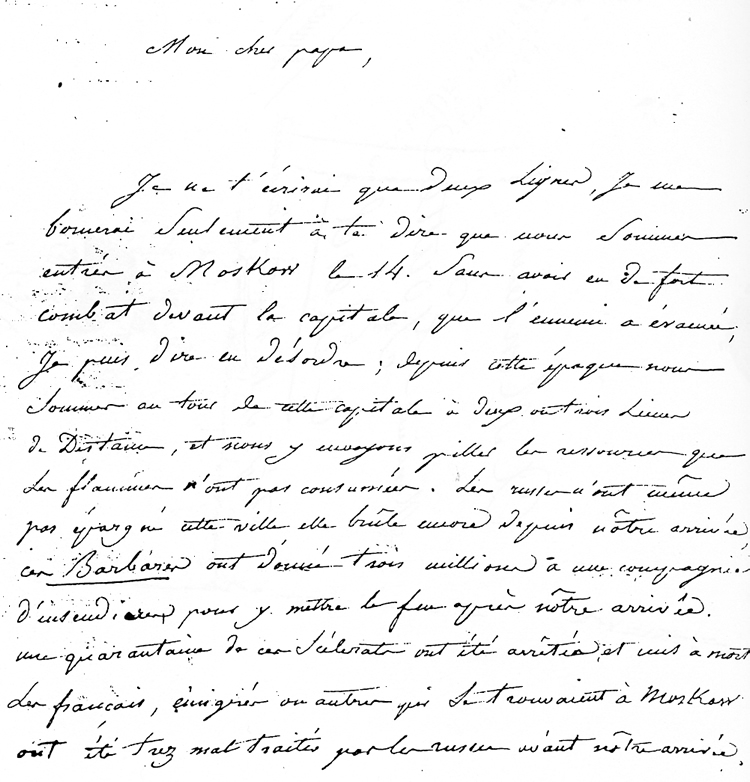 Mon cher papa,
Je ne t'écrirai que deux Lignes, Je me
bornerai Seulement à te dire que nous Sommes
entrés à Moskow le 14. Sans avoir eu de fort
combat devant la capitale, que l'ennemi a évacuée,
Je puis dire en désordre; depuis cette époque nous
Sommes au tour de cette capitale à deux ou trois Lieues
de Distance, et nous y envoyons piller les ressources que
Les flammes n'ont pas consumées. Les russes n'ont même
pas épargné cette ville elle brûle encore depuis nôtre arrivée,
ces Barbares ont donné trois millions à une compagnie
d'insendiaires pour y mettre le feu après nôtre arrivée.
une quarantaine de ces Scélerats ont été arrêtés, et mis à mort
Les français, émigrés ou autres qui Se trouvaient à Moskow
ont été trez mal traités par les russes avant nôtre arrivée.